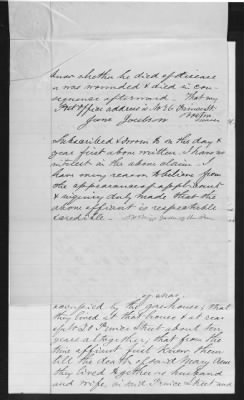 know whether he died of disease
or was wounded & died in con-
sequence afterward. That my
Post Office address is No 26 Prince St
Boston
Subscribed & Sworn to on the day &
year first above written & I have no
interest in the above claim. I
have every reason to believe from
the appearance of applicant
& inquiry duly made that the
above affiant is respectable
& credible.
occupied by the gas house, that
they lived at that house & at
No 30 Prince Street about ten
years altogether, that from the
time affiant first knew them
till the death of said Mary Ann
they lived together as husband
and wife, in said Prince Street and